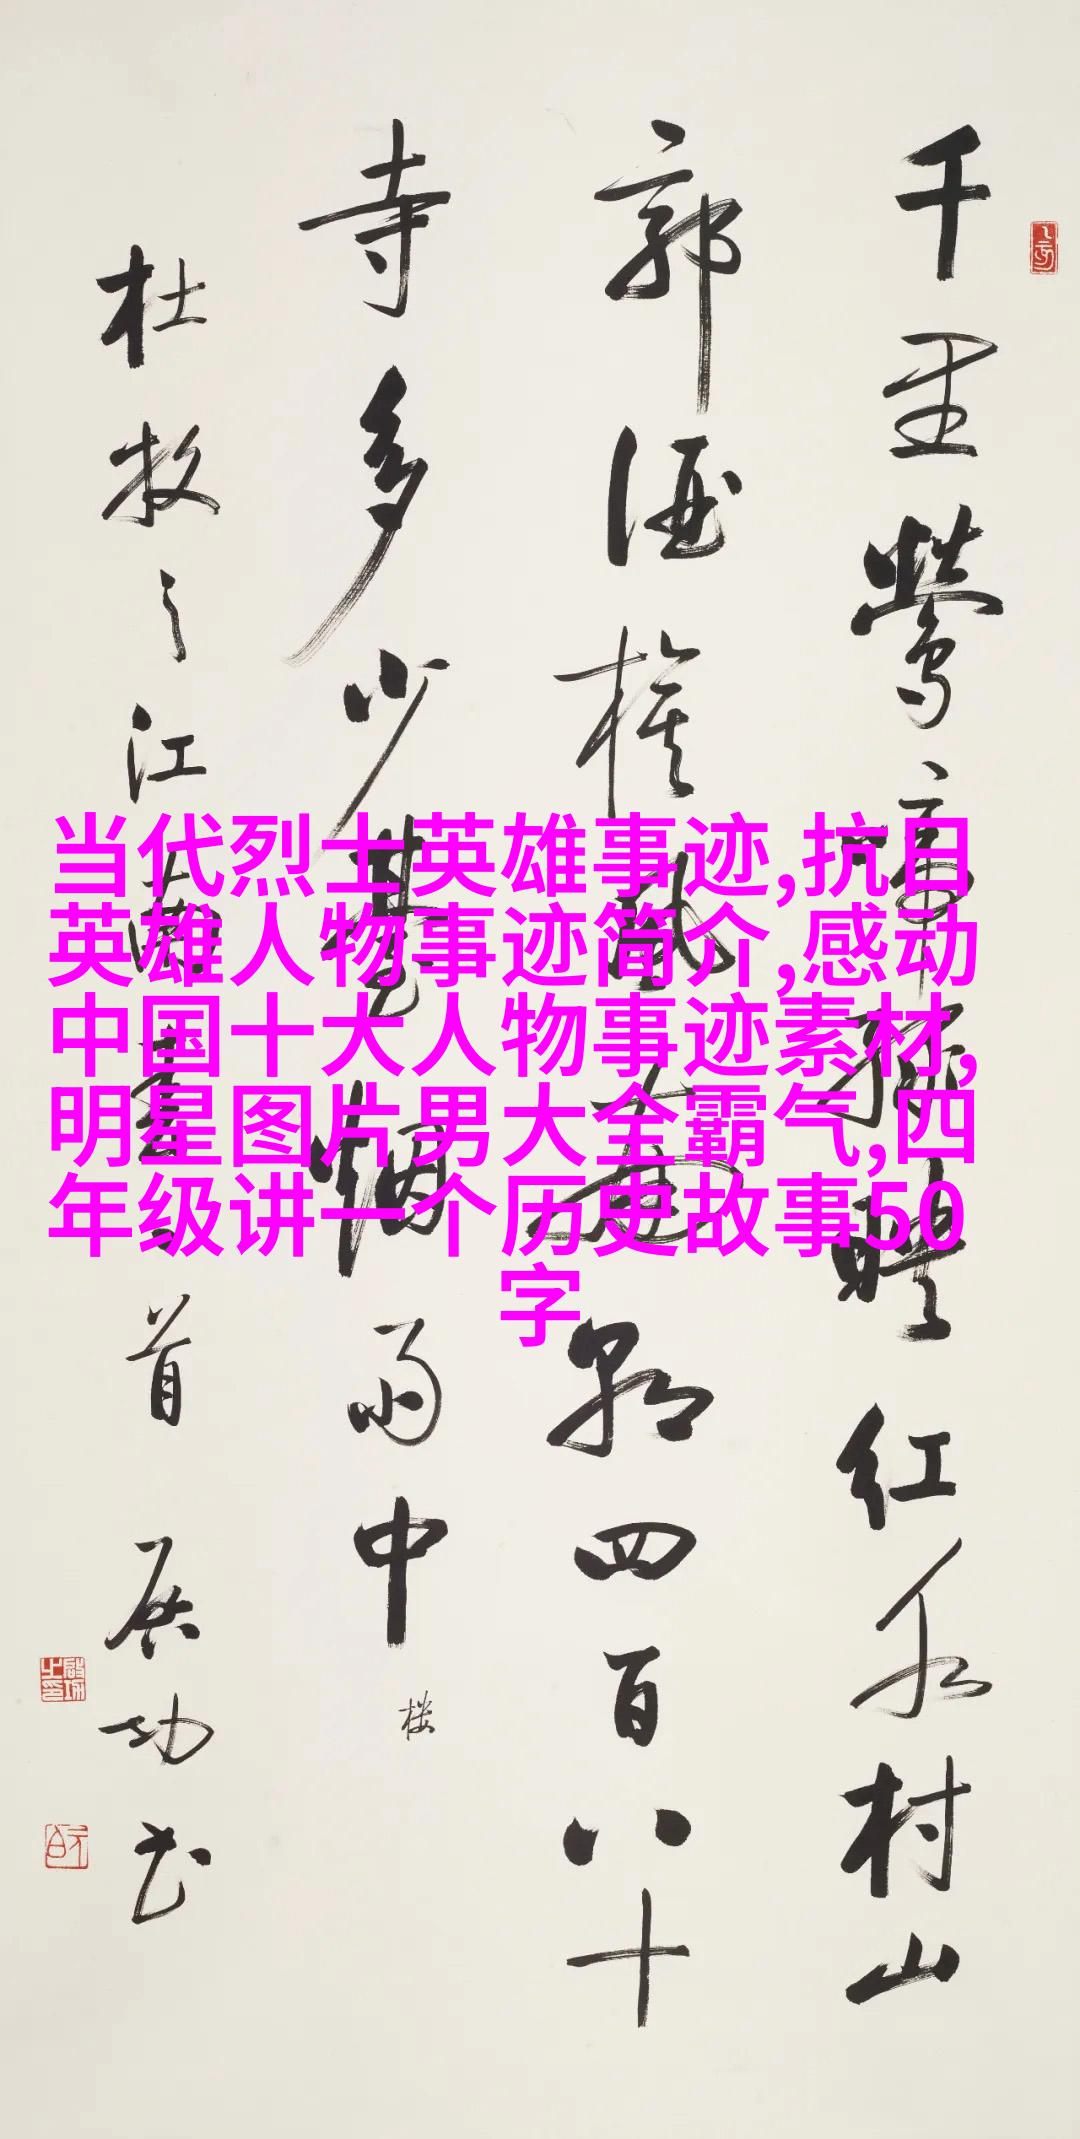 千里鶯啼绿映红水村山
郭酒旗風南朝四百八十
寺多少臺烟雨中 楼
杜牧之江南春一首 启功书
当代烈士英雄事迹,抗日
英雄人物事迹简介,感动
中国十大人物事迹素材,
明星图片男大全霸气,四
年级讲一个历史故事50
字